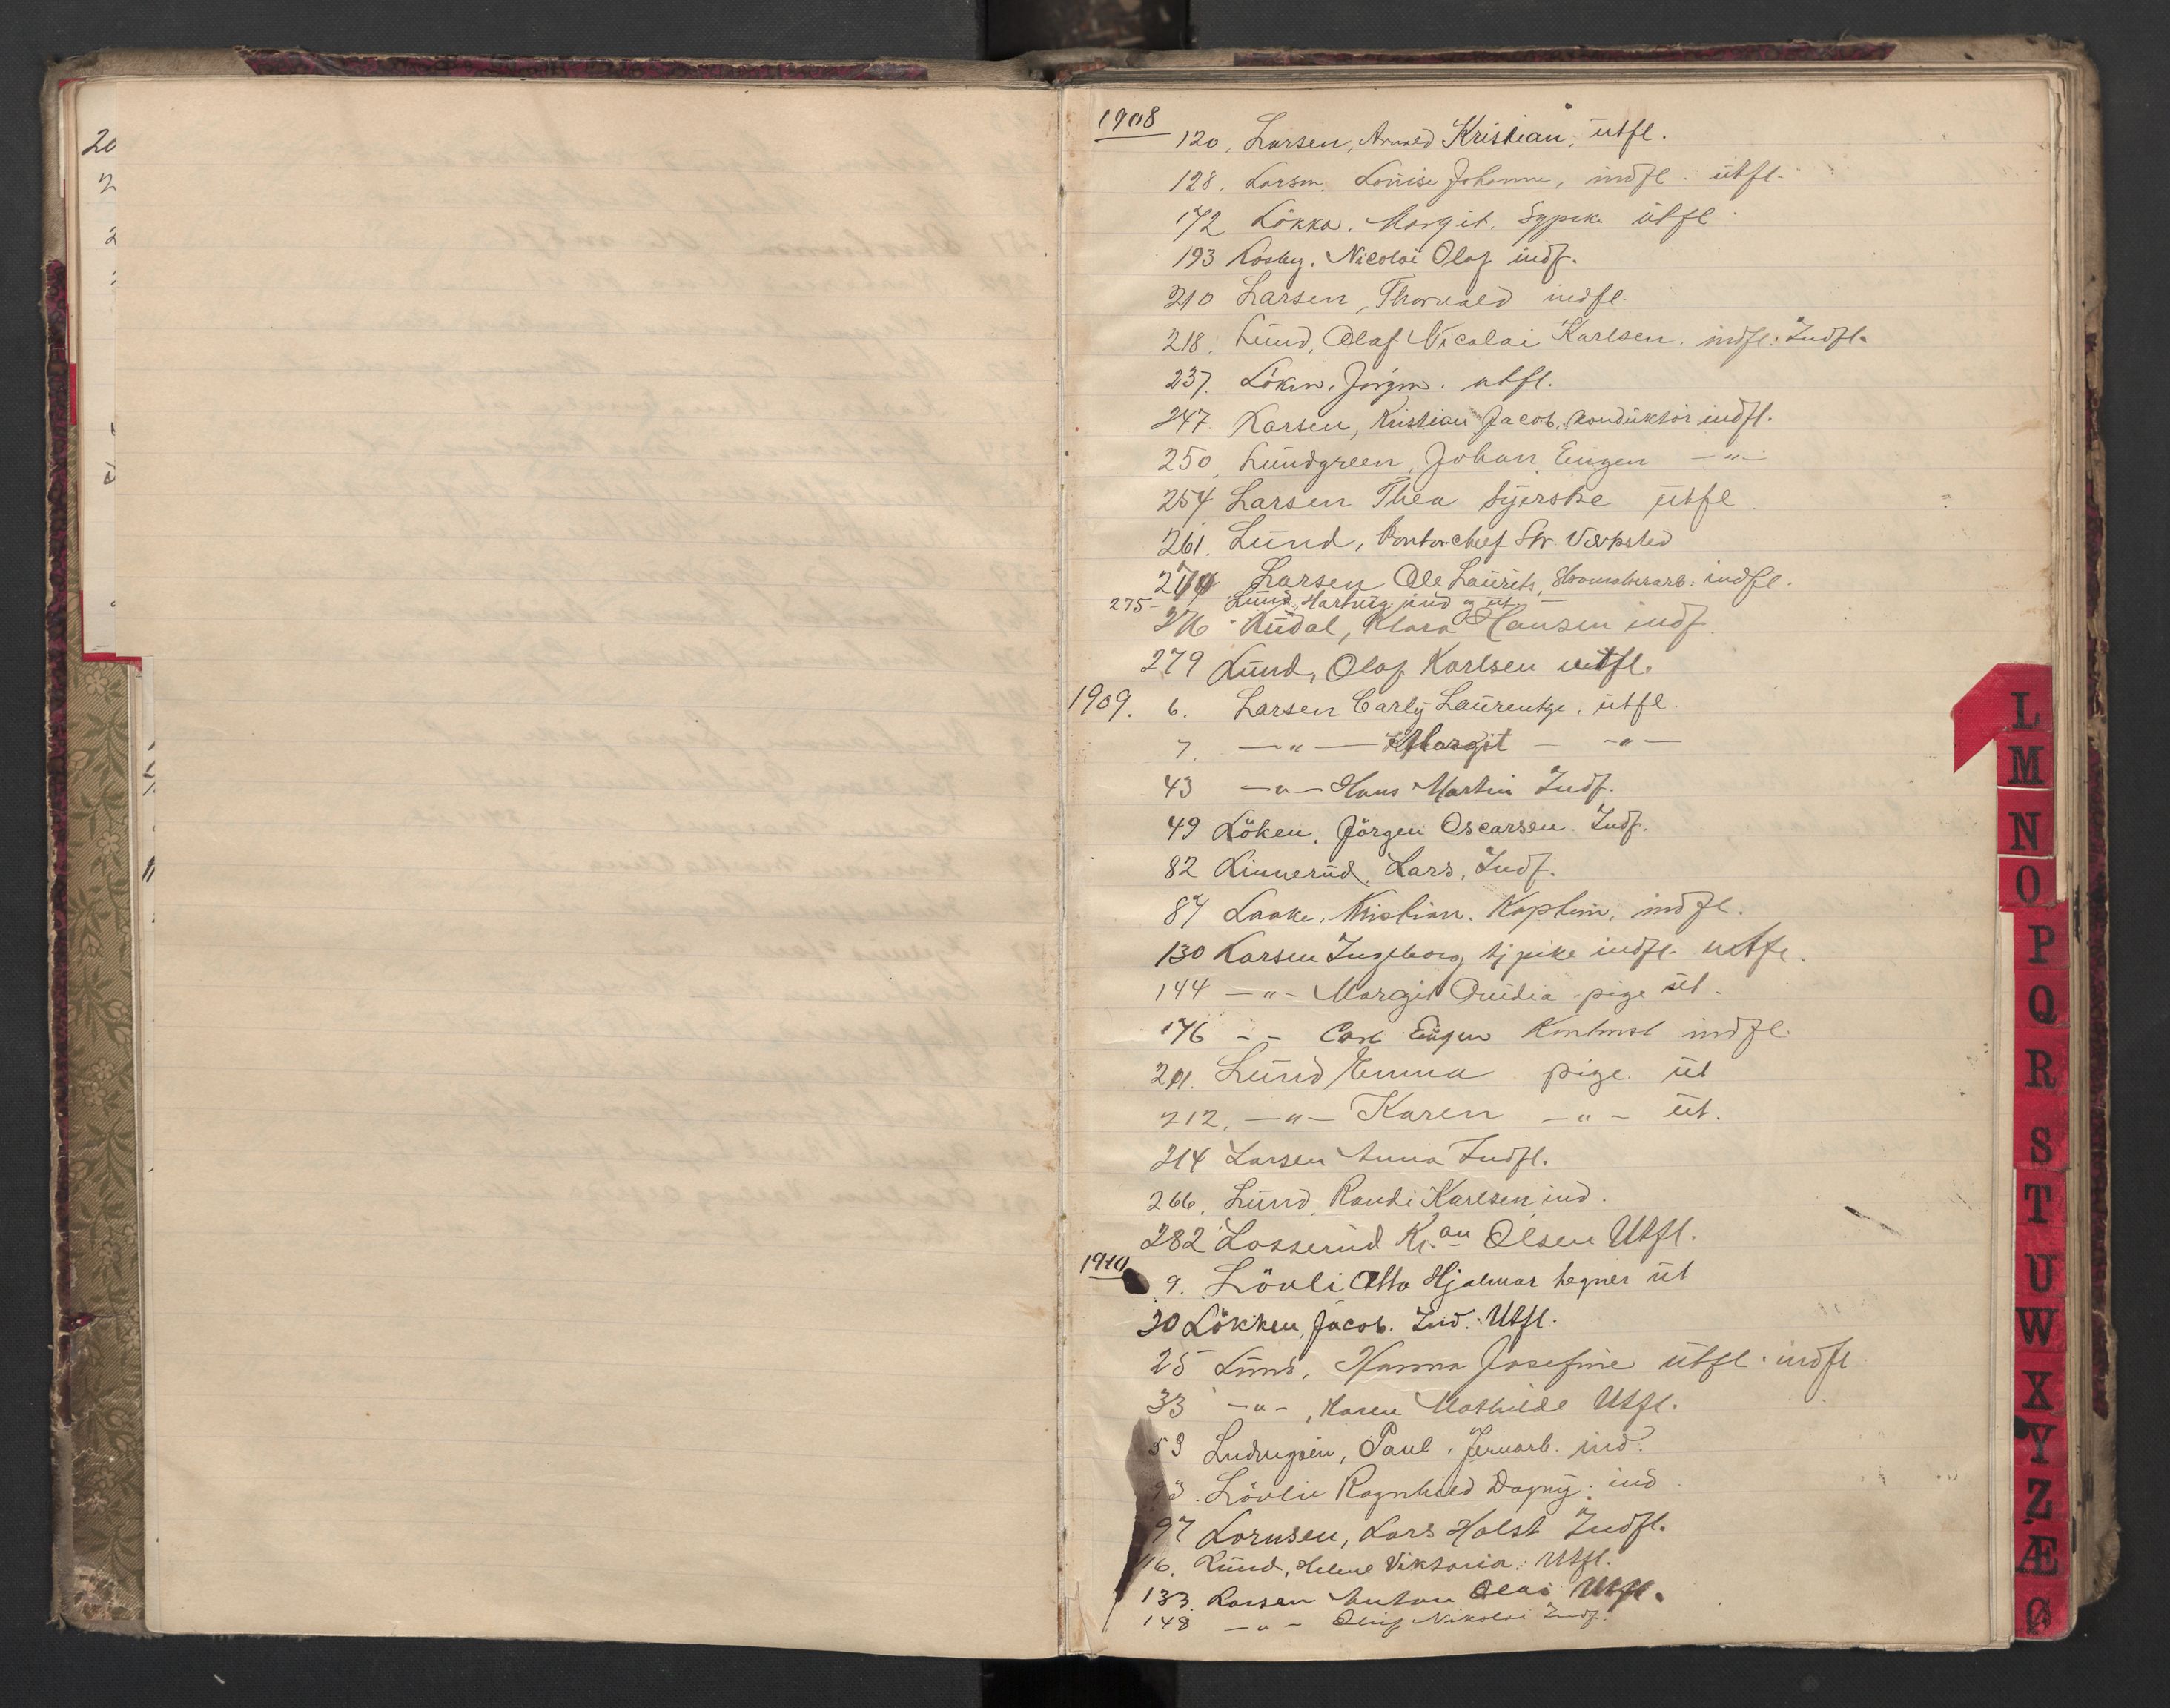 1908
120, Larsen, Arnold Kristian, utfl.
128. Larsen. Louise Johanne, indfl. utfl.
172 Lökka. Margit. Sypike utfl.
193 Losby. Nicolai Olaf indf.
210 Larsen, Thorvald indfl.
218. Lund, Olaf Nicolai Karlsen. indfl. Indfl.
237. Löken. Jörgen. utfl.
247. Larsen, Kristian Jacob, konduktör indfl.
250, Lundgreen, Johan Eugen —"—
254 Larsen Thea Syerske utfl.
261. Lund, Kontorchef Str. Værksted
274 Larsen Ole Laurits, indfl.
275- Lund, Hartvig ind og ut
276 Ludal, Klara Hansen indf.
279 Lund, Olaf Karlsen utfl.
1909. 6. Larsen Carly Laurentze, utfl.
7. —"— Margit — —"—
43 —"— Hans Martin Indf.
49 Löken. Jörgen Oscarsen. Indf.
82 Linnerud. Lars, Indf.
87 Laake. Kristian. Kaptein, indfl.
130 Larsen Ingeborg tjpike indfl. utfl.
144 —"— Margit Ovidia pige ut.
176 —"— Carl Eugen Kontorist indfl.
211. Lund Emma pige ut
212. —"— Karen —"— ut.
214 Larsen Anna Indfl.
266. Lund, Randi Karlsen ind.
282 Losserud Kr.an Olsen Utfl.
1910
9. Lövli Otto Hjalmar tegner ut
20 Lökken, Jacob. Ind. Utfl.
25 Lund, Hanna Josefine utfl. indfl
33 —"—, Karen Mathilde Utfl.
53 Ludvigsen, Paul. Jernarb. ind.
93. Lövlie Ragnhild Dagny. ind
97 Lornsen, Lars Holst Indfl.
116. Lund, Helene Viktoria. Utfl.
133. Larsen Anton Olai Utfl.
148 —"— Oluf Nikolai Indf.
20
2
2
L
M
N
O
P
Q
R
S
T
U
W
X
Y
Z
Æ
Ø